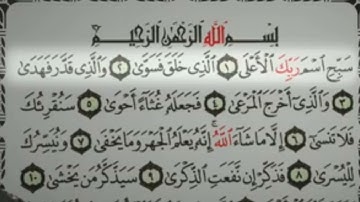 بِسْمِ اللَّهِ الرَّحْمَٰنِ الرَّحِيمِ
سَبِّحِ اسْمَ رَبِّكَ الْأَعْلَى ١ الَّذِي خَلَقَ فَسَوَّىٰ ٢ وَالَّذِي قَدَّرَ فَهَدَىٰ
٣ وَالَّذِي أَخْرَجَ الْمَرْعَىٰ ٤ فَجَعَلَهُ غُثَاءً أَحْوَىٰ ٥ سَنُقْرِئُكَ
فَلَا تَنسَىٰ ٦ إِلَّا مَا شَاءَ اللَّهُ ۚ إِنَّهُ يَعْلَمُ الْجَهْرَ وَمَا يَخْفَىٰ ٧ وَنُيَسِّرُكَ
لِلْيُسْرَىٰ ٨ فَذَكِّرْ إِن نَّفَعَتِ الذِّكْرَىٰ ٩ سَيَذَّكَّرُ مَن يَخْشَىٰ ١٠